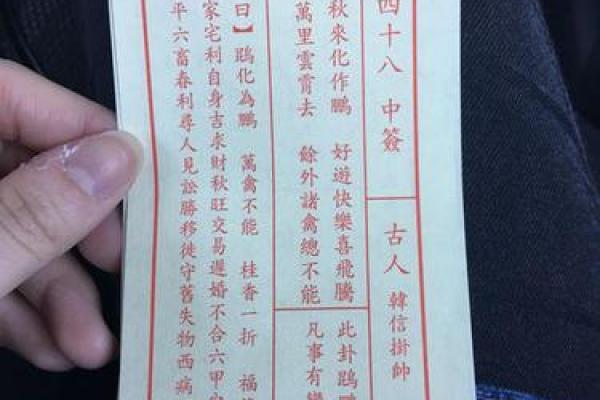 四十八 中簽
古人 韓信掛帥
秋來化作鵬 好遊快樂喜飛騰
萬里雲霄去 餘外諸禽總不能
此卦鵾鵬
凡事有變
曰】 鵾化為鵬 萬禽不能 桂香一折 福
家宅利自身吉求財秋旺交易遲婚不合六甲
平六畜春利尋人見訟勝移徙守舊失物西病